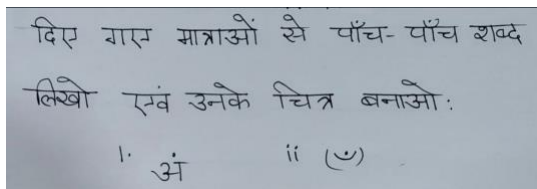 दिए गए मात्राओं से पाँच-पाँच शब्द
लिखो एवं उनके चित्र बनाओ:
1. अं ii (ँ)